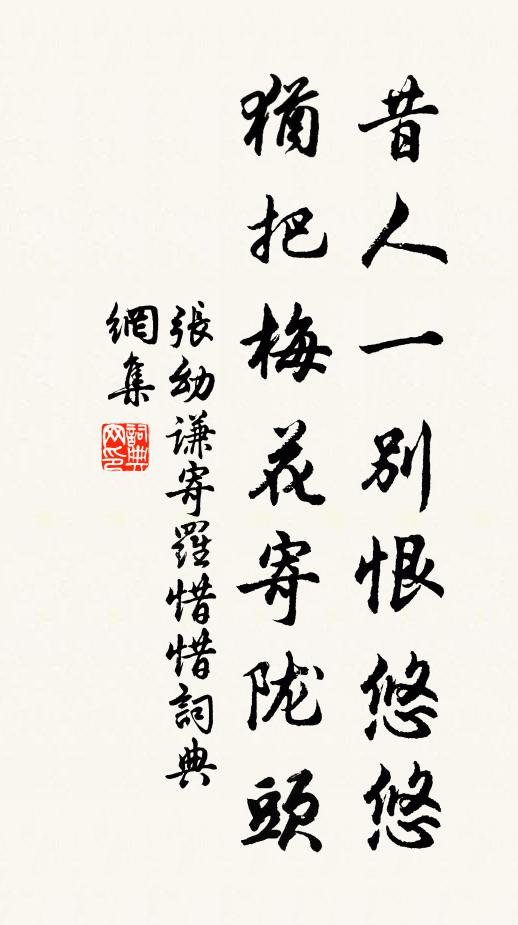 昔人一別恨悠悠
猶把梅花寄陇頭
張幼謙寄羅惜惜詞典
網集
詞典
网印